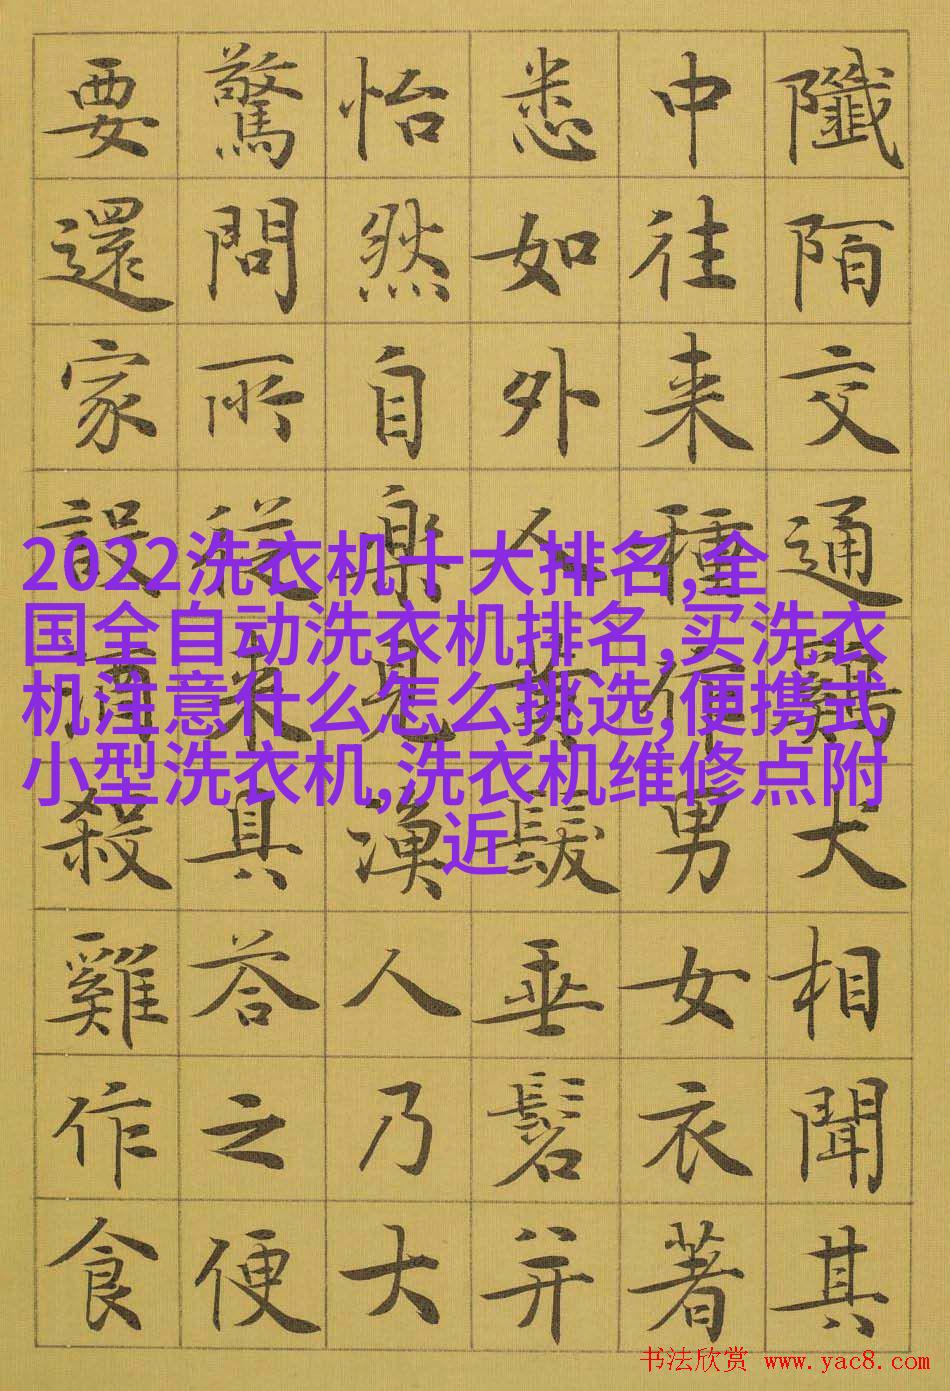 陌交通犬相聞其
中往來種作男女衣著
悉如外人黄髮垂髫并
怡然自樂見漁人乃大
驚問所從來具答之便
要還家設酒殺雞作食
2022洗衣机十大排名,全
国全自动洗衣机排名,买洗衣
机注意什么怎么挑选,便携式
小型洗衣机,洗衣机维修点附
近
书法欣赏 www.yac8.com